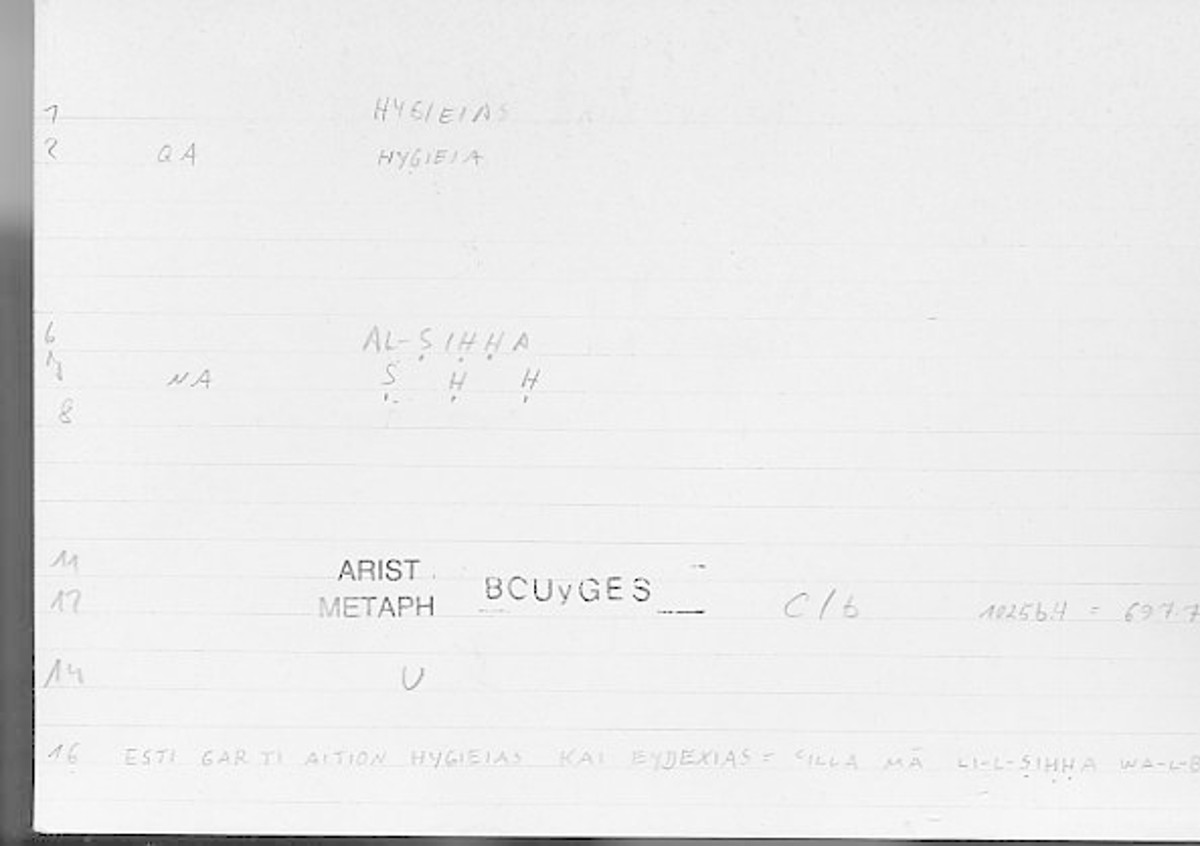 1 HYGIEIAS
2 QA HYGIEIA
6 AL-ṢIḤḤA
7 NA Ṣ Ḥ Ḥ
8
11 ARIST.
12 METAPH BCUyGES C/b 1025b4 = 697.7
14 U
16 ESTI GAR TI AITION HYGIEIAS KAI EYDEXIAS = ʿILLA MĀ LI-L-ṢIḤḤA WA-L-B